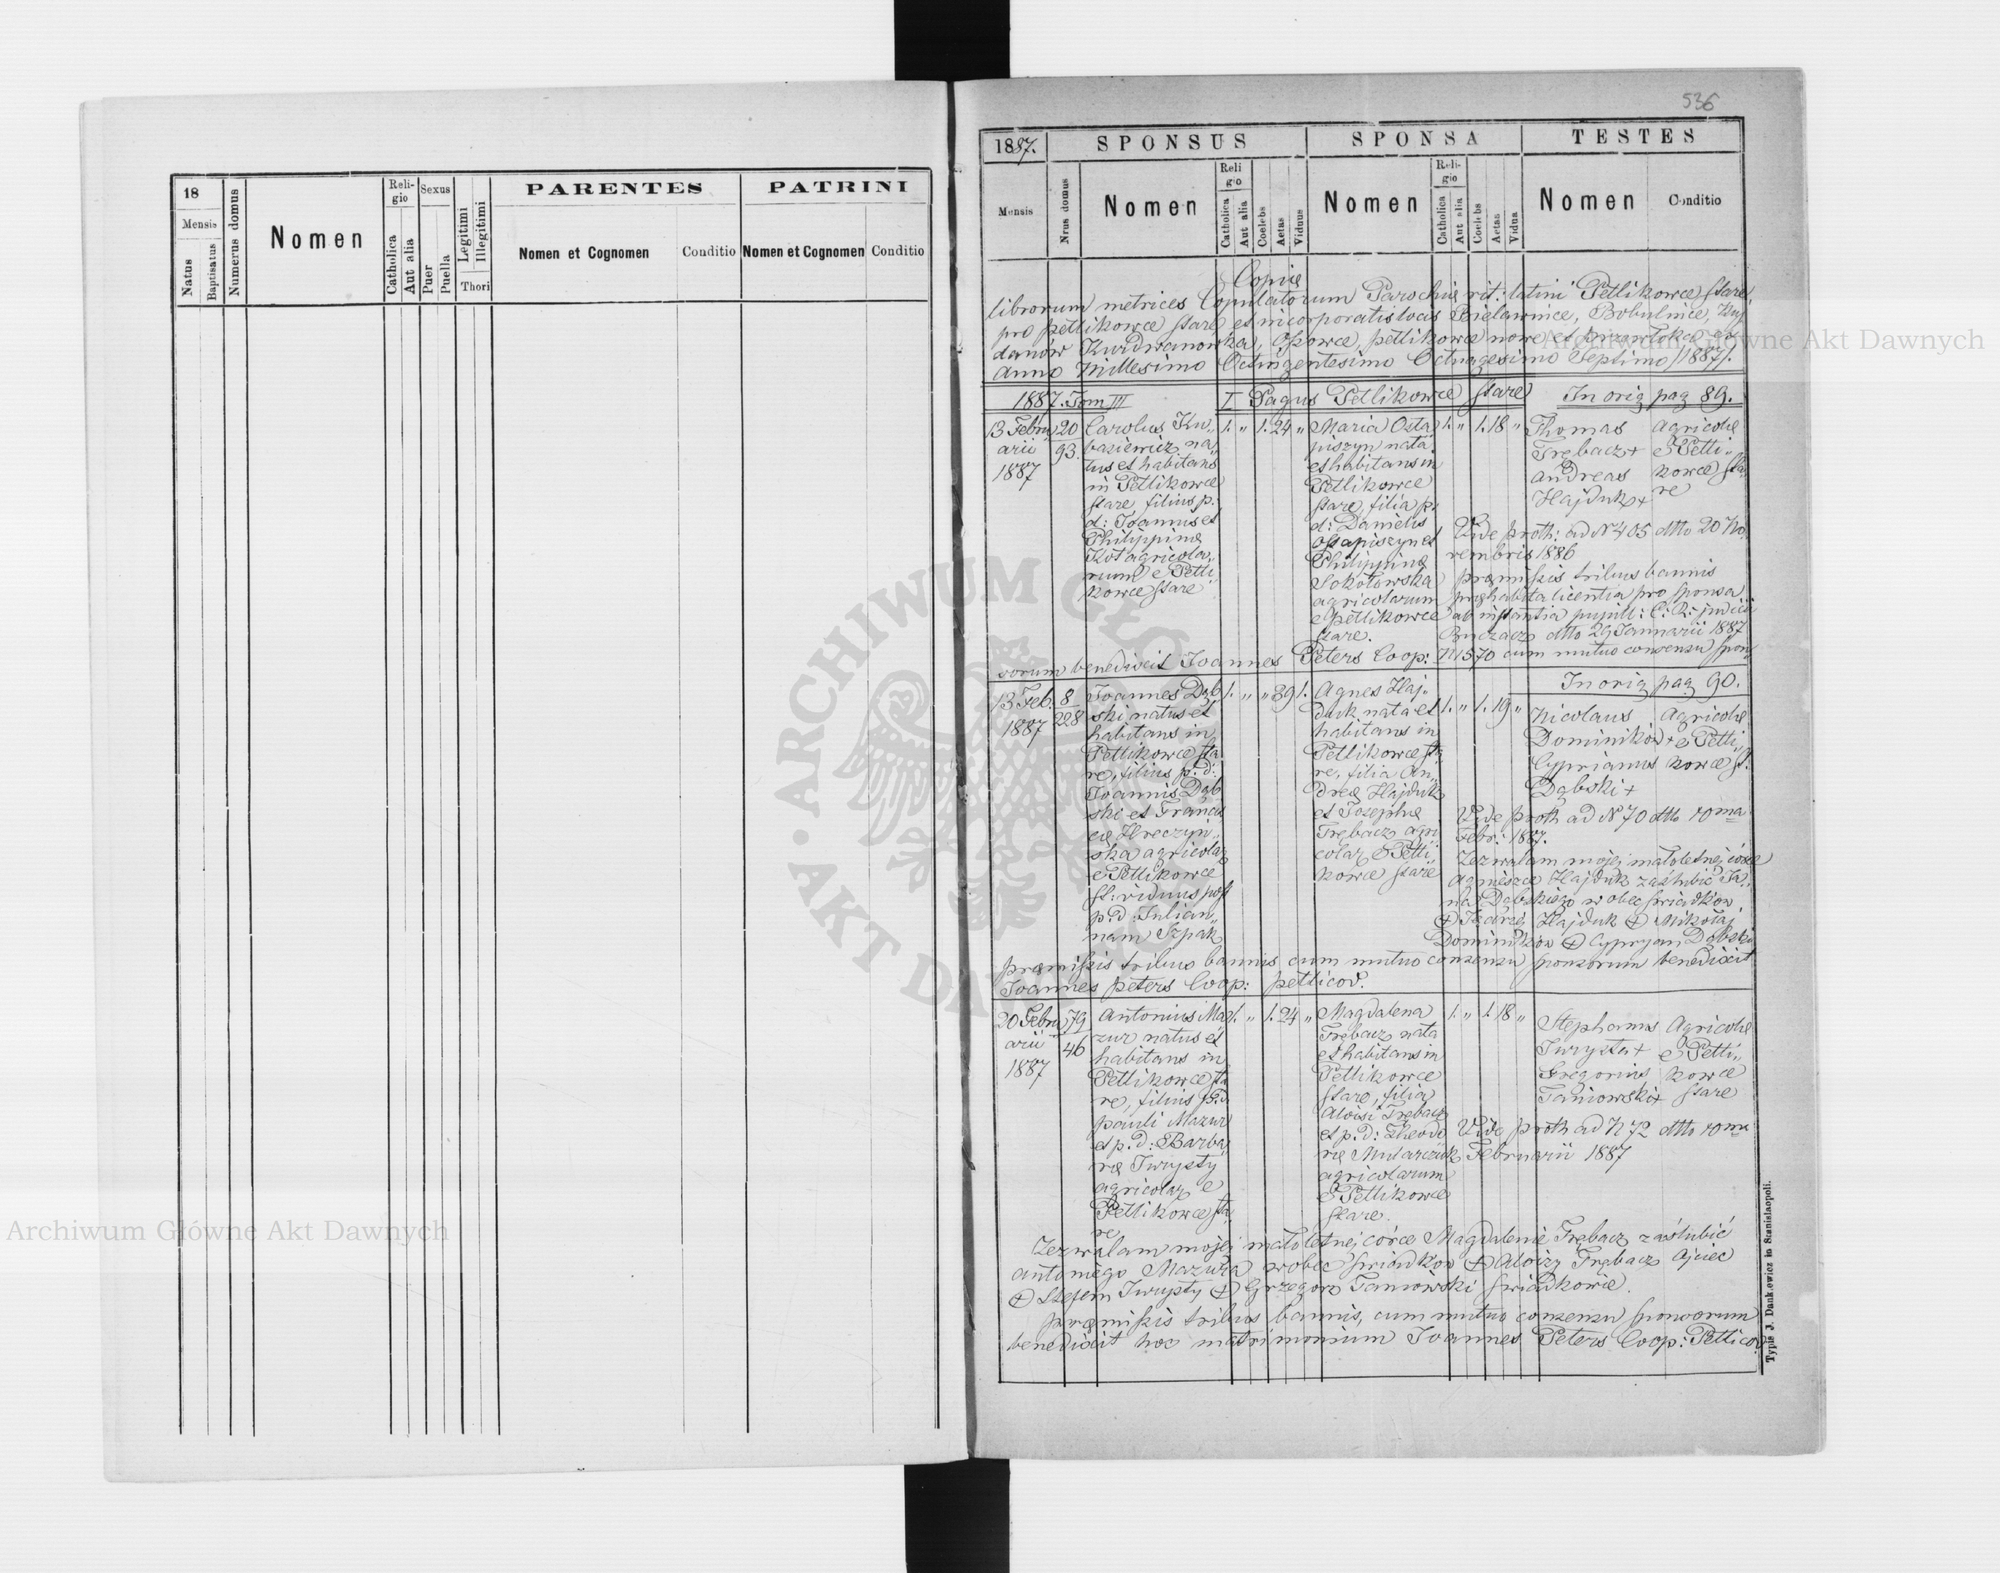 18
Mensis
Natus
Baptisatus
Numerus domus
Nomen
Reli-
gio
Catholica
Aut alia
Sexus
Puer
Puella
Legitimi
Illegitimi
Thori
PARENTES
Nomen et Cognomen
Conditio
PATRINI
Nomen et Cognomen
Conditio
536
1887.
SPONSUS
SPONSA
TESTES
Mensis
Nrus domus
Nomen
Reli
gio
Catholica
Aut alia
Coelebs
Aetas
Viduus
Nomen
Reli-
gio
Catholica
Aut alia
Coelebs
Aetas
Vidua
Nomen
Conditio
Copiæ
librorum metrices Copulatorum Parochiæ rit: latini Petlikowce stare,
pro petlikowce stare et incorporatis locis Bielawince, Bobulince, Kuj
danów Kurdwanowka, Ossowce, petlikowce nowe et
anno Millesimo Octingentesimo Octuagesimo Septimo /1887/.
1887. Tom III
I Pagus Petlikowce stare
In orig pag 89.
13 Febru
arii
1887
20
93.
Carolus Ku„
basiewicz na„
tus et habitans
in Petlikowce
stare, filius p:
d: Joannis et
Philippinæ
Kot agricola„
rum e Petli
kowce stare
1. „ 1. 24 „
Maria Osta
piszyn nata
et habitans in
Petlikowce
stare, filia p:
d: Danielis
Ostapiszyn et
Philippinæ
Sokołowska
agricolarum
e petlikowce
stare.
1. „ 1. 18 „
Thomas
Trębacz +
Andreas
Hajduk +
Agricolæ
e Petli„
kowce sta
re
Vide proth: ad N 405 dtto 20 No
vembris 1886
præmissis tribus bannis
præhabita licentia pro sponsa
ab instantia pupill: C: R: judicii
Buczacz dtto 29 Januarii 1887
N 1570 cum mutuo consensu spon
sorum benedixit Joannes Peters Coop:
In orig pag 90.
13 Feb.
1887
8
228
Joannes Dąb
ski natus et
habitans in
Petlikowce sta
re, filius p: d:
Joannis Dąb
ski et Francis
cæ Hreczyn„
ska agricolar
e Petlikowce
st: viduus post
p: d: Julian„
nam Szpak
1. „ „ 39 1.
Agnes Haj„
duk nata et
habitans in
Petlikowce sta
re, filia An„
dreæ Hajduk
et Josephæ
Trębacz agri
colar e Petli
kowce stare
1. „ 1. 19 „
Nicolaus
Dominików +
Cyprianus
Dąbski +
Agricolæ
e Petli
kowce st:
Vide proth ad N 70 dtto 10ma
Febr: 1887.
Zezwalam mojej małoletnej córce
Agnieszce Hajduk zaślubić Ja„
na Dąbskiego wobec świadków
Hajduk + Mikołaj
Dominików + Cypryan Dąbski
præmissis tribus bannis cum mutuo consensu sponsorum benedixit
Joannes Peters Coop: petlicov.
20 Febru
arii
1887
79
46
Antonius Ma
zur natus et
habitans in
Petlikowce sta
re, filius p: d
pauli Mazur
et p: d: Barba
ræ Iwrysty
agricolar e
Petlikowce sta„
re
1. „ 1. 24 „
Magdalena
Trębacz nata
et habitans in
Petlikowce
stare, filia
Aloisi Trębacz
et p: d: Theodo
ræ Mularczuk
agricolarum
e Petlikowce
stare.
1. „ 1. 18 „
Stephanus
Iwrysta +
Gregorius
Taniowski +
Agricolæ
e Petli„
kowce
stare
Vide proth ad N 72 dtto 10ma
Februarii 1887
Zezwalam mojej małoletnej córce Magdalenie Trębacz zaślubić
Antoniego Mazura wobec świadków + Aloizy Trębacz Ojciec
+ Stefan Iwrysty + Grzegorz Taniowski świadkowie.
præmissis tribus bannis, cum mutuo consensu sponsorum
benedixit hoc matrimonium Joannes Peters Coop: Petlicov
Typis J. Dankiewicz in Stanislaopoli.
Archiwum Główne Akt Dawnych
Archiwum Główne Akt Dawnych
ARCHIWUM GŁÓWNE AKT DAWNYCH